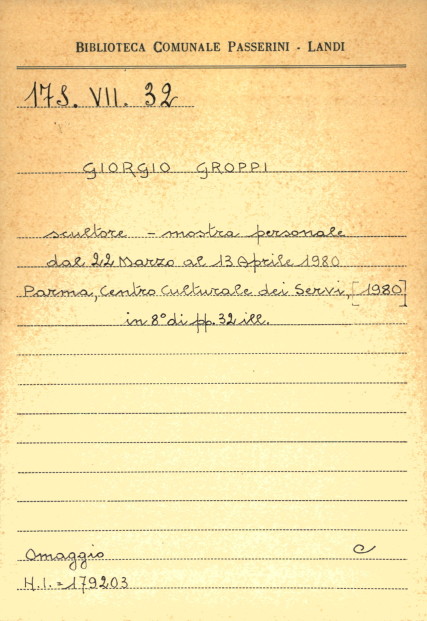 BIBLIOTECA COMUNALE PASSERINI - LANDI
17S. VII. 32
GIORGIO GROPPI
scultore - mostra personale
dal 22 Marzo al 13 Aprile 1980
Parma, Centro Culturale dei Servi, [1980]
in 8° di pp. 32 ill.
Omaggio C
N.I. = 179203